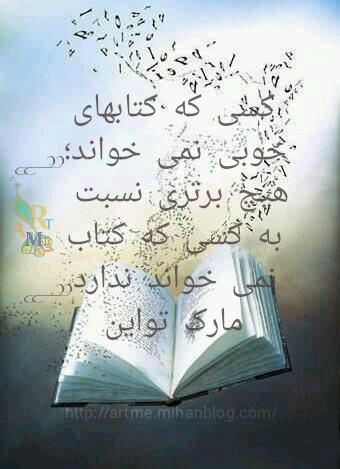 کسی که کتابهای
خوبی نمی خواند؛
هیچ برتری نسبت
به کسی که کتاب
نمی خواند ندارد
مارک تواین
ART
ME
http://artme.mihanblog.com/